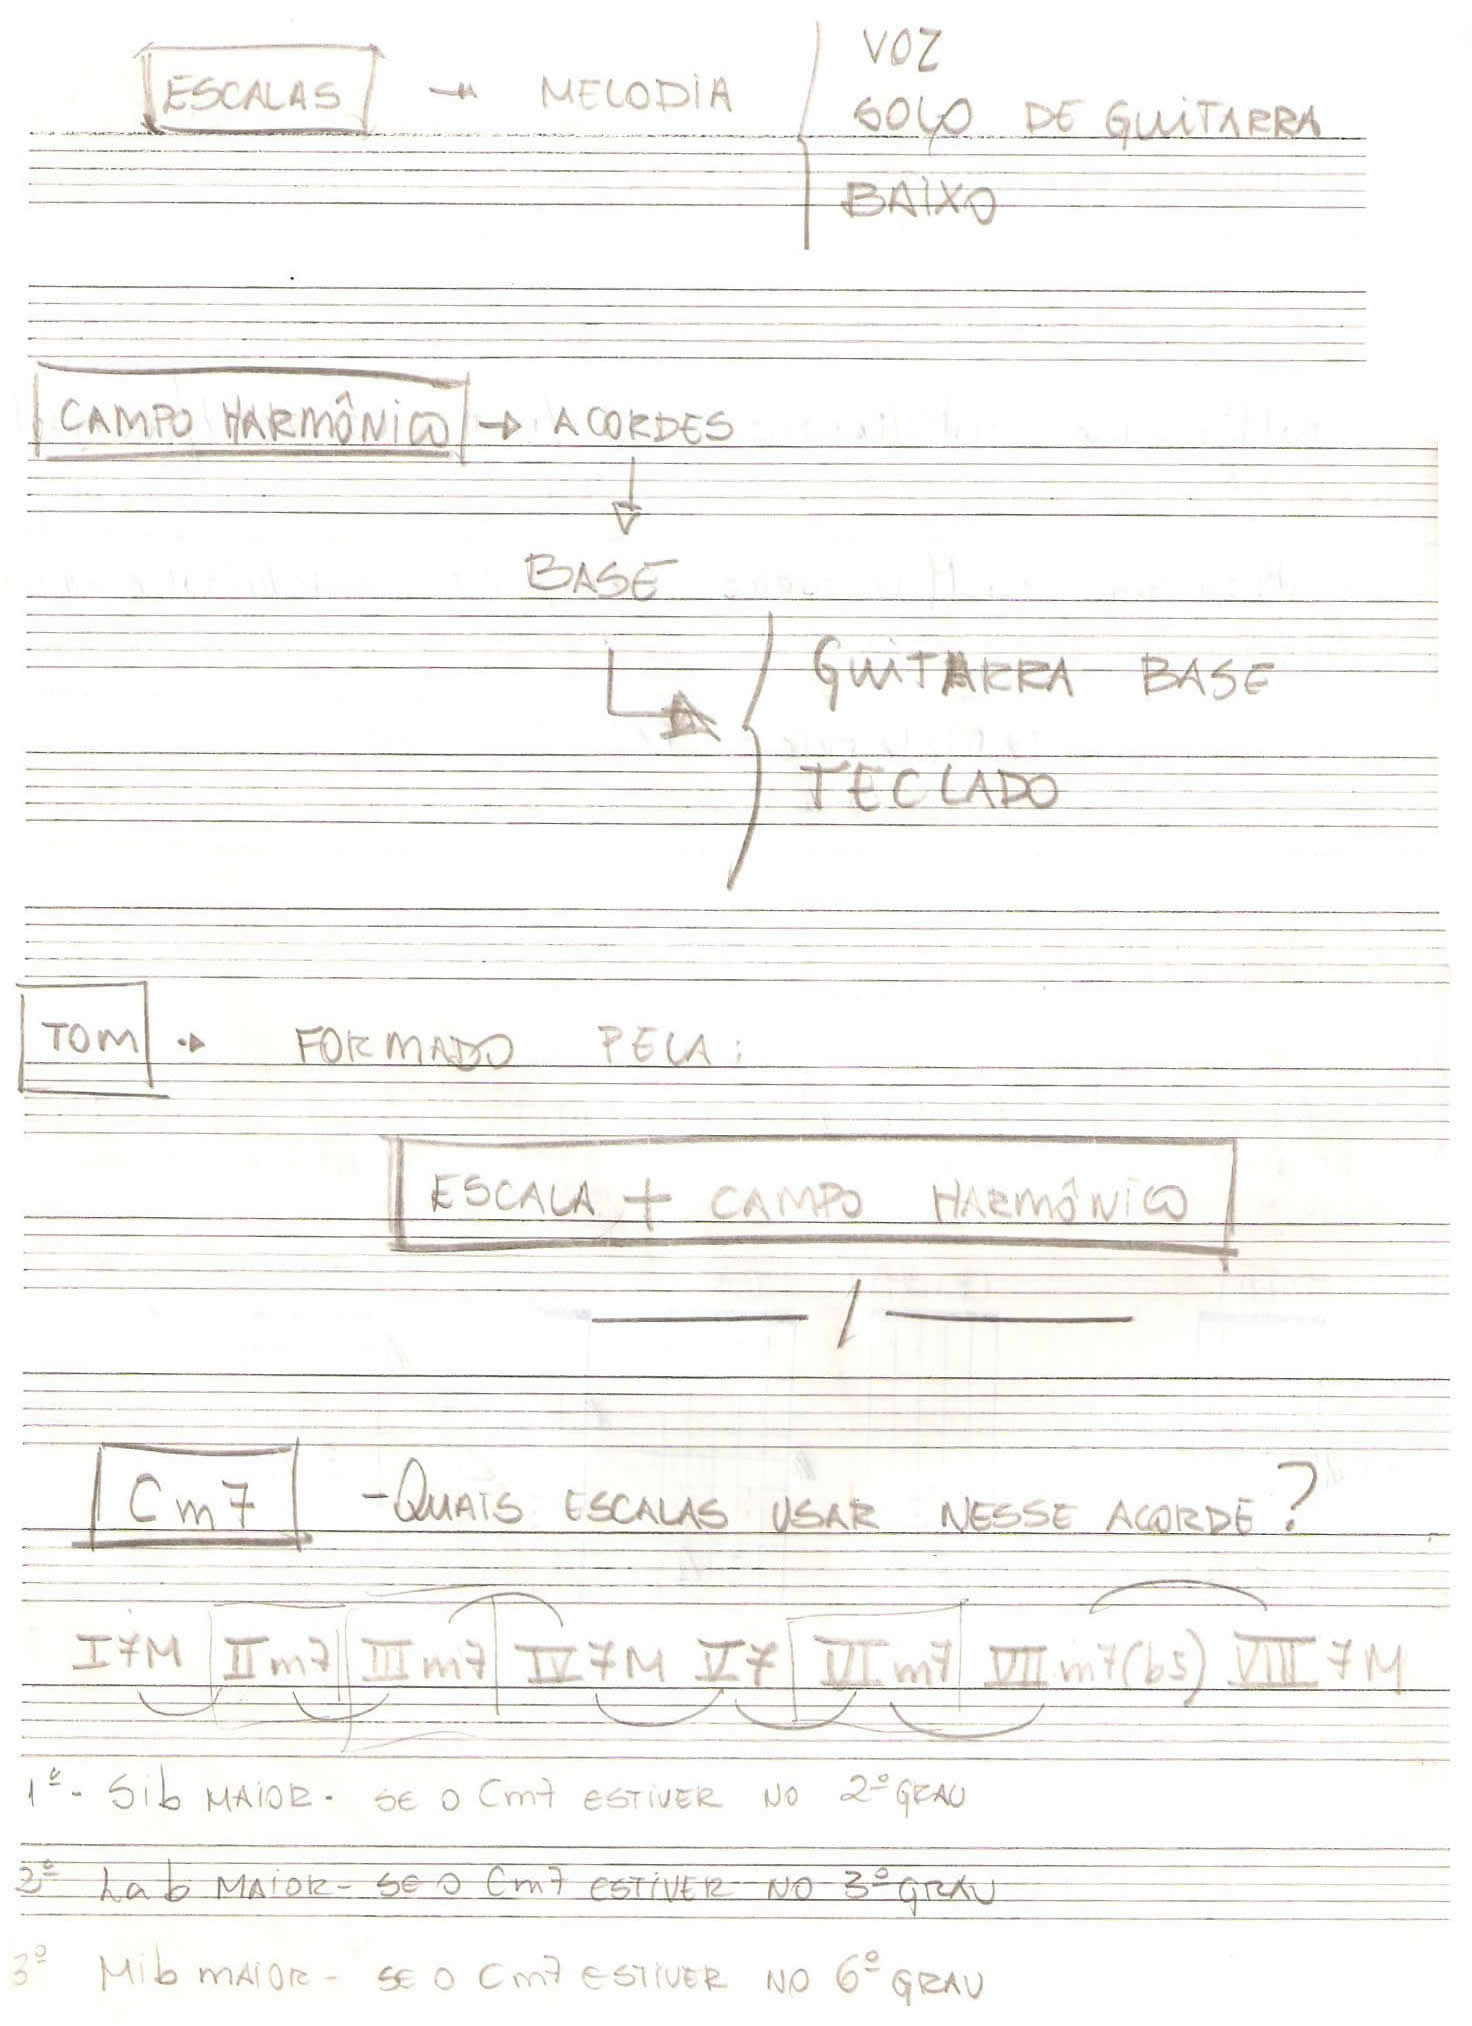 ESCALAS → MELODIA
VOZ
SOLO DE GUITARRA
BAIXO
CAMPO HARMÔNICO → ACORDES
BASE
GUITARRA BASE
TECLADO
TOM → FORMADO PELA:
ESCALA + CAMPO HARMÔNICO
Cm7 - QUAIS ESCALAS USAR NESSE ACORDE?
I7M IIm7 IIIm7 IV7M V7 VIm7 VIIm7(b5) VIII7M
1º - Sib MAIOR - SE O Cm7 ESTIVER NO 2º GRAU
2º Lab MAIOR - SE O Cm7 ESTIVER NO 3º GRAU
3º Mib MAIOR - SE O Cm7 ESTIVER NO 6º GRAU